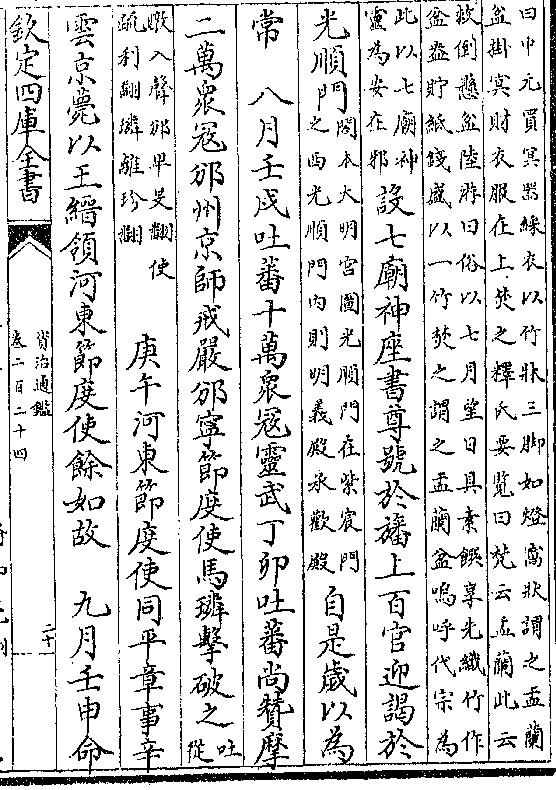 曰中元買冥器綵衣以竹斫三脚如燈窩狀謂之盂蘭
盆掛冥財衣服在上焚之釋氏要覽曰梵云盂蘭此云
救倒懸盆陸游曰俗以七月望日具素饌享先織竹作
盆盎貯紙錢盛以一竹焚之謂之盂蘭盆嗚呼代宗為
此以七廟神
靈為安在邪
設七廟神座書尊號於旛上百官迎謁於
光順門
閣本大明宮圖光順門在紫宸門
之西光順門内則明義殿承歡殿
自是歲以為
常　八月壬戌吐蕃十萬衆寇靈武丁卯吐蕃尚贊摩
二萬衆寇邠州京師戒嚴邠寧節度使馬璘擊破之
吐
從
暾入聲邠卑旻翻使
疏利翻璘離珍翻
庚午河東節度使同平章事辛
雲京薨以王縉領河東節度使餘如故　九月壬申命
欽定四庫全書
資治通鑑
卷二百二十四
二十